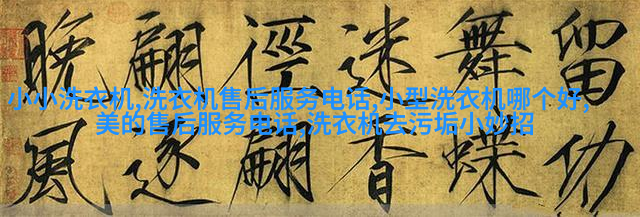 留功
舞蝶
迷香
徑翩
翩逐
晚風
小小洗衣机,洗衣机售后服务电话,小型洗衣机哪个好,
美的售后服务电话,洗衣机去污垢小妙招